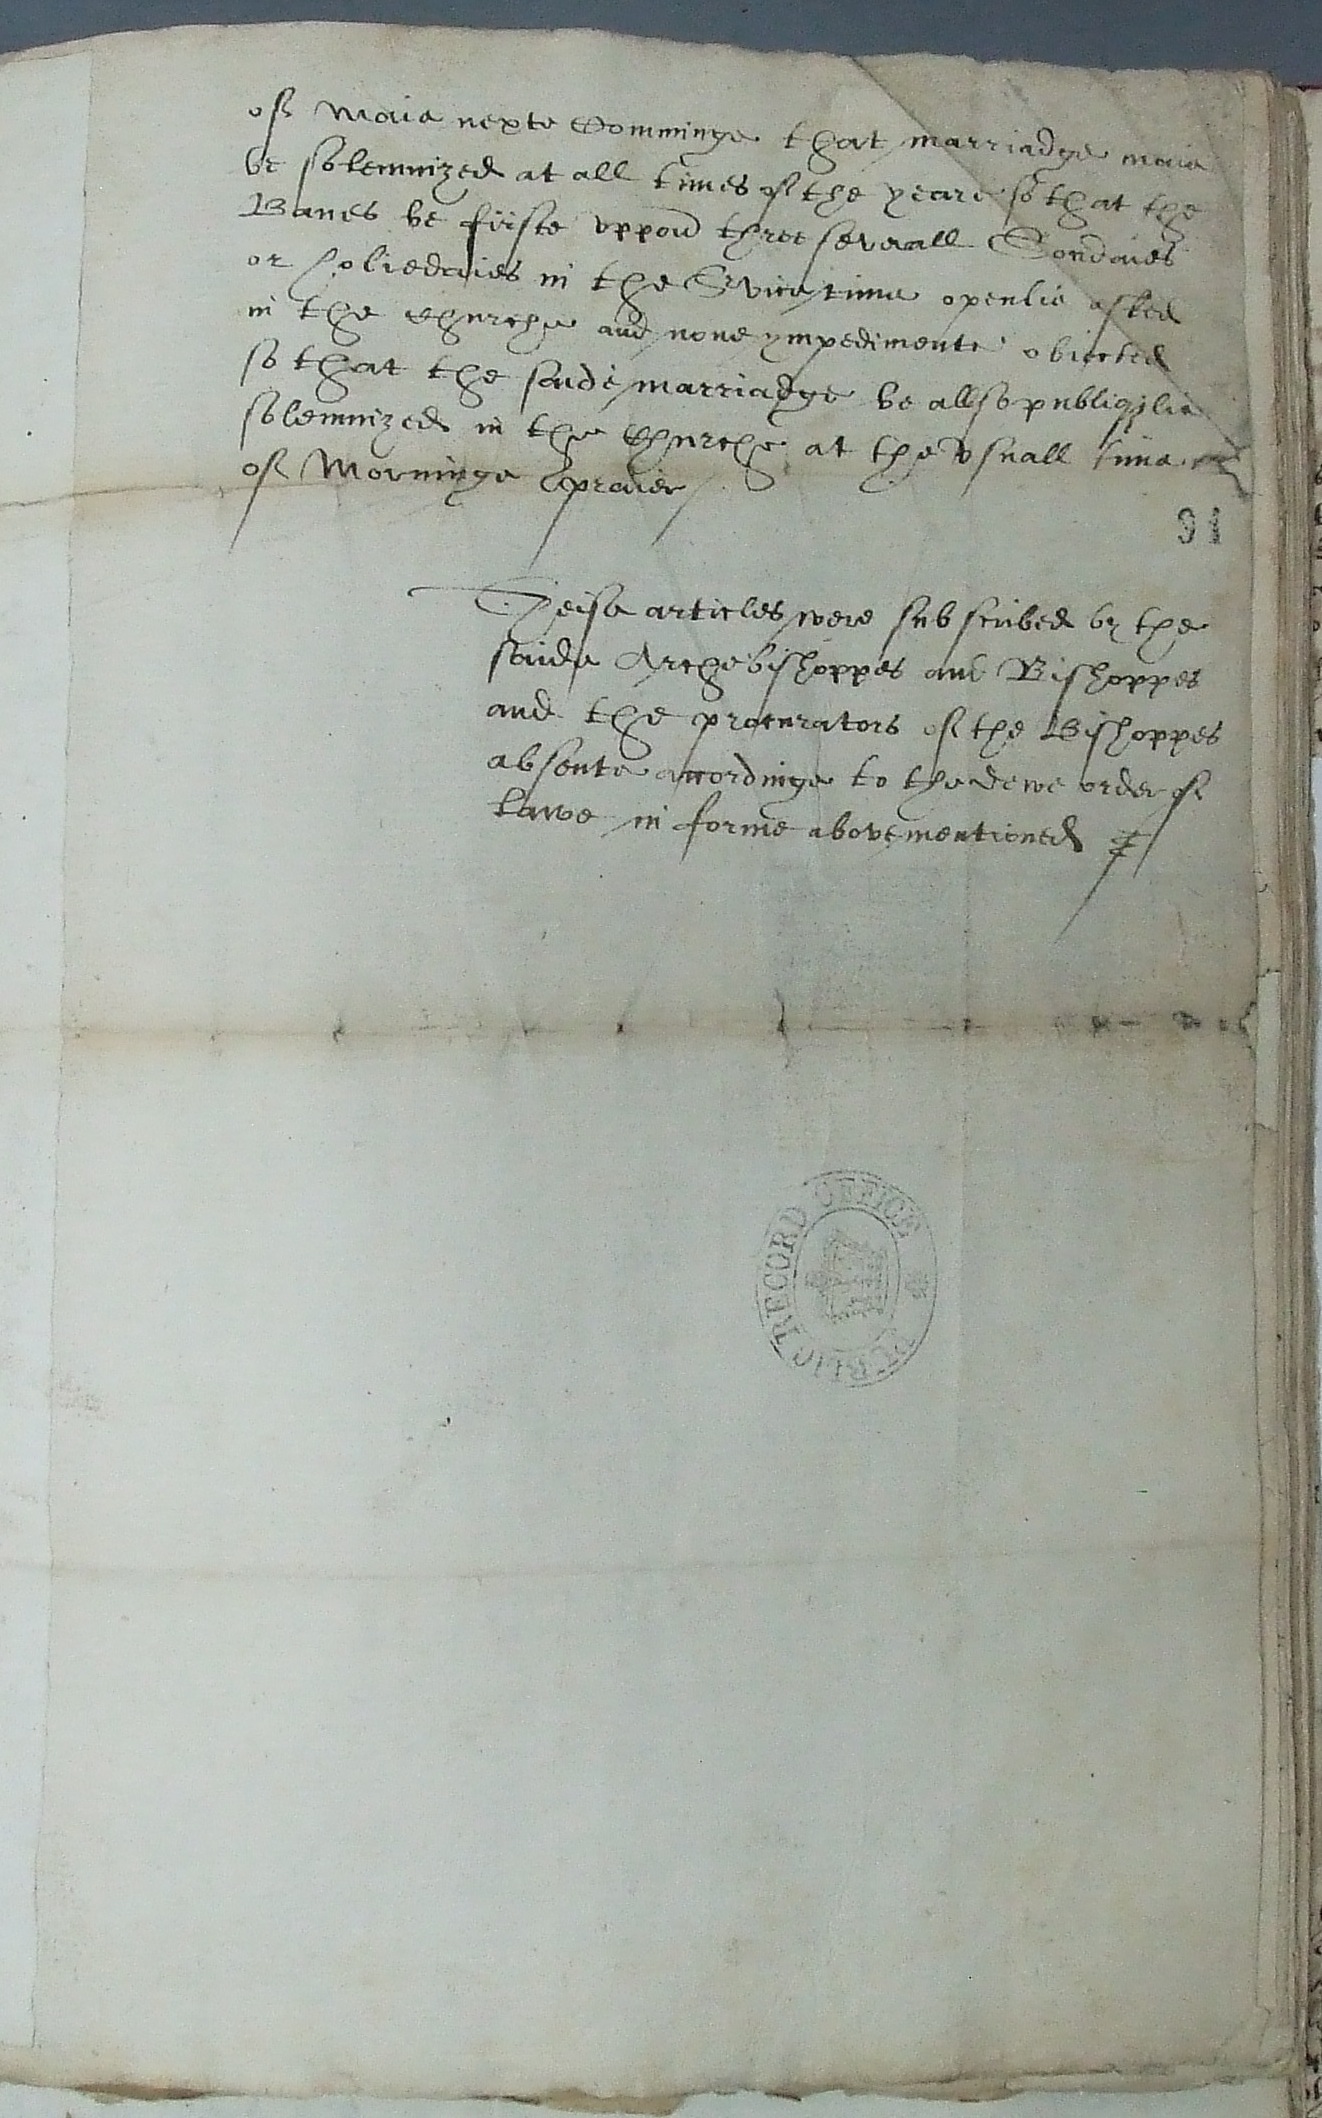 of Maie nexte Comminge that marriadge maie
be solemnized at all times of the yeare so that the
Banes be firste uppon three severall Sondaies
or holiedaies in the Service time openlie asked
in the Churche and none ympedimente obiected
so that the saide marriadge be allso publiqelie
solemnized in the Churche at the usuall time
of Morninge praier
91
Theise articles were subscribed by the
saide Archebishoppes and Bishoppes
and the procurators of the Bishoppes
absente accordinge to the dewe order of
lawe in forme above mentioned
PUBLIC RECORD OFFICE